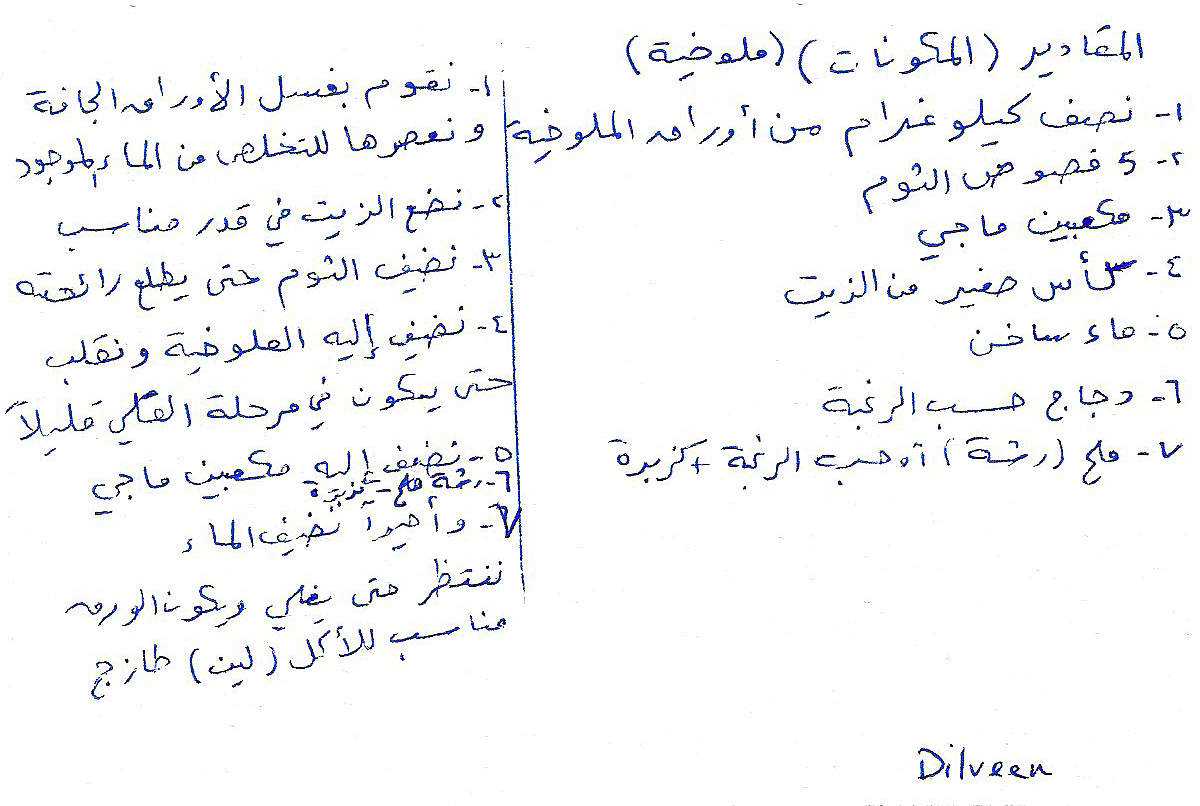 المقادير (المكونات) (ملوخية)
١- نصف كيلو غرام من أوراق الملوخية
٢- 5 فصوص الثوم
٣- مكعبين ماجي
٤- كأس صغير من الزيت
٥- ماء ساخن
٦- دجاج حسب الرغبة
٧- ملح (رشة) أو حسب الرغبة + كزبرة
١- نقوم بغسل الأوراق الجافة
ونعصرها للتخلص من الماء الموجود
٢- نضع الزيت في قدر مناسب
٣- نضيف الثوم حتى يطلع رائحته
٤- نضيف إليه الملوخية ونقلب
حتى يكون في مرحلة القلي قليلاً
٥- نضيف إليه مكعبين ماجي
٦- رشة ملح - كزبرة
٧- وأخيراً نضيف الماء
ننتظر حتى يغلي ويكون الورق
مناسب للأكل (لين) طازج
Dilveen